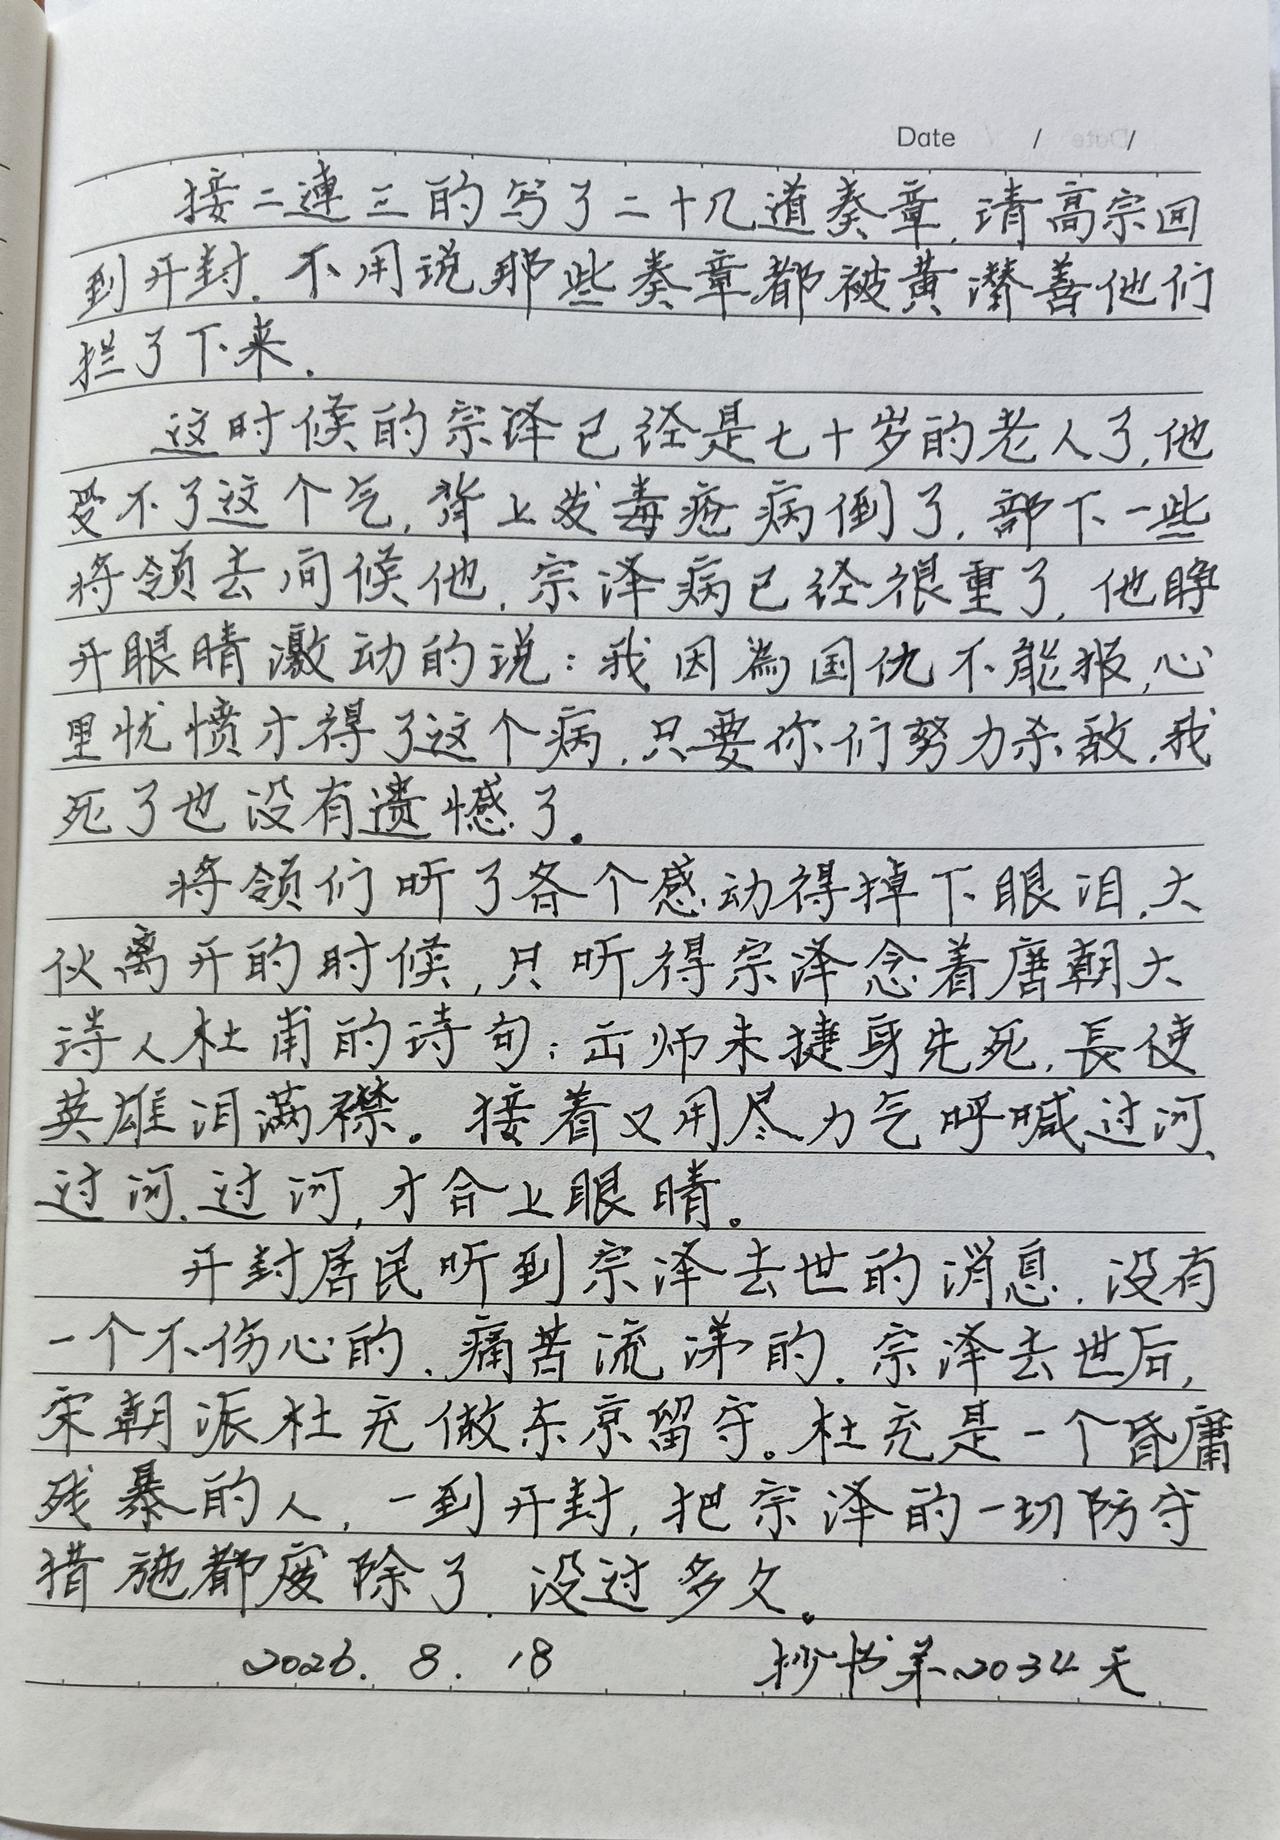 Date / / /
接二連三的写了二十几道奏章,请高宗回
到开封.不用说那些奏章都被黄潜善他们
拦了下来.
这时候的宗泽已经是七十岁的老人了,他
受不了这个气,背上发毒疮病倒了.部下一些
将领去问候他.宗泽病已经很重了,他睁
开眼睛激动的说:我因為国仇不能报,心
里忧愤才得了这个病.只要你们努力杀敌.我
死了也没有遗憾了。
将领们听了各个感动得掉下眼泪.大
伙离开的时候,只听得宗泽念着唐朝大
诗人杜甫的诗句:出师未捷身先死.長使
英雄泪满襟。接着又用尽力气呼喊过河、
过河.过河,才合上眼睛。
开封居民听到宗泽去世的消息.没有
一个不伤心的、痛苦流涕的.宗泽去世后,
宋朝派杜充做东京留守。杜充是一个昏庸
残暴的人,一到开封,把宗泽的一切防守
措施都废除了.没过多久。
2026.8.18 抄书第2034天